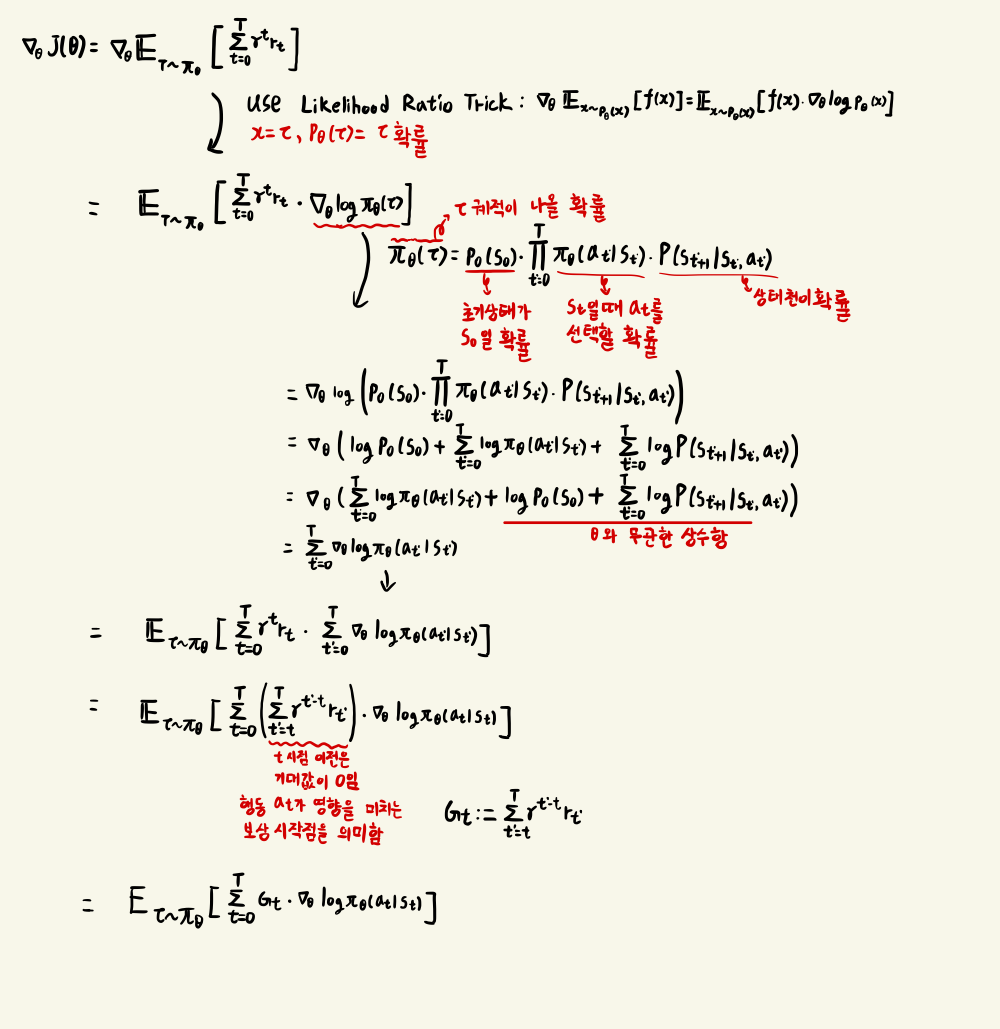 ∇θ J(θ) = ∇θ 𝔼τ~πθ [ Σ_{t=0}^{T} γ^t r_t ]
Use Likelihood Ratio Trick : ∇θ 𝔼x~pθ(x) [f(x)] = 𝔼x~pθ(x) [f(x) · ∇θ log pθ(x)]
x = τ, Pθ(τ) = τ 확률
= 𝔼τ~πθ [ Σ_{t=0}^{T} γ^t r_t · ∇θ log πθ(τ) ]
τ 궤적이 나올 확률
πθ(τ) = P0(S0) · Π_{t=0}^{T} πθ(at|st) · P(st+1|st, at)
초기상태가
S0일 확률
St일때 at를
선택할 확률
상태전이확률
= ∇θ log ( P0(S0) · Π_{t=0}^{T} πθ(at|st) · P(st+1|st, at) )
= ∇θ ( log P0(S0) + Σ_{t=0}^{T} log πθ(at|st) + Σ_{t=0}^{T} log P(st+1|st, at) )
= ∇θ ( Σ_{t=0}^{T} log πθ(at|st) + log P0(S0) + Σ_{t=0}^{T} log P(st+1|st, at) )
θ와 무관한 상수항
= Σ_{t=0}^{T} ∇θ log πθ(at|st)
= 𝔼τ~πθ [ Σ_{t=0}^{T} γ^t r_t · Σ_{t'=0}^{T} ∇θ log πθ(at'|st') ]
= 𝔼τ~πθ [ Σ_{t=0}^{T} ( Σ_{t'=t}^{T} γ^{t'-t} r_t' ) · ∇θ log πθ(at|st) ]
t시점 이전은
기대값이 0임
행동 at가 영향을 미치는
보상 시작점을 의미함
Gt := Σ_{t'=t}^{T} γ^{t'-t} r_t'
= Eτ~πθ [ Σ_{t=0}^{T} Gt · ∇θ log πθ(at|st) ]